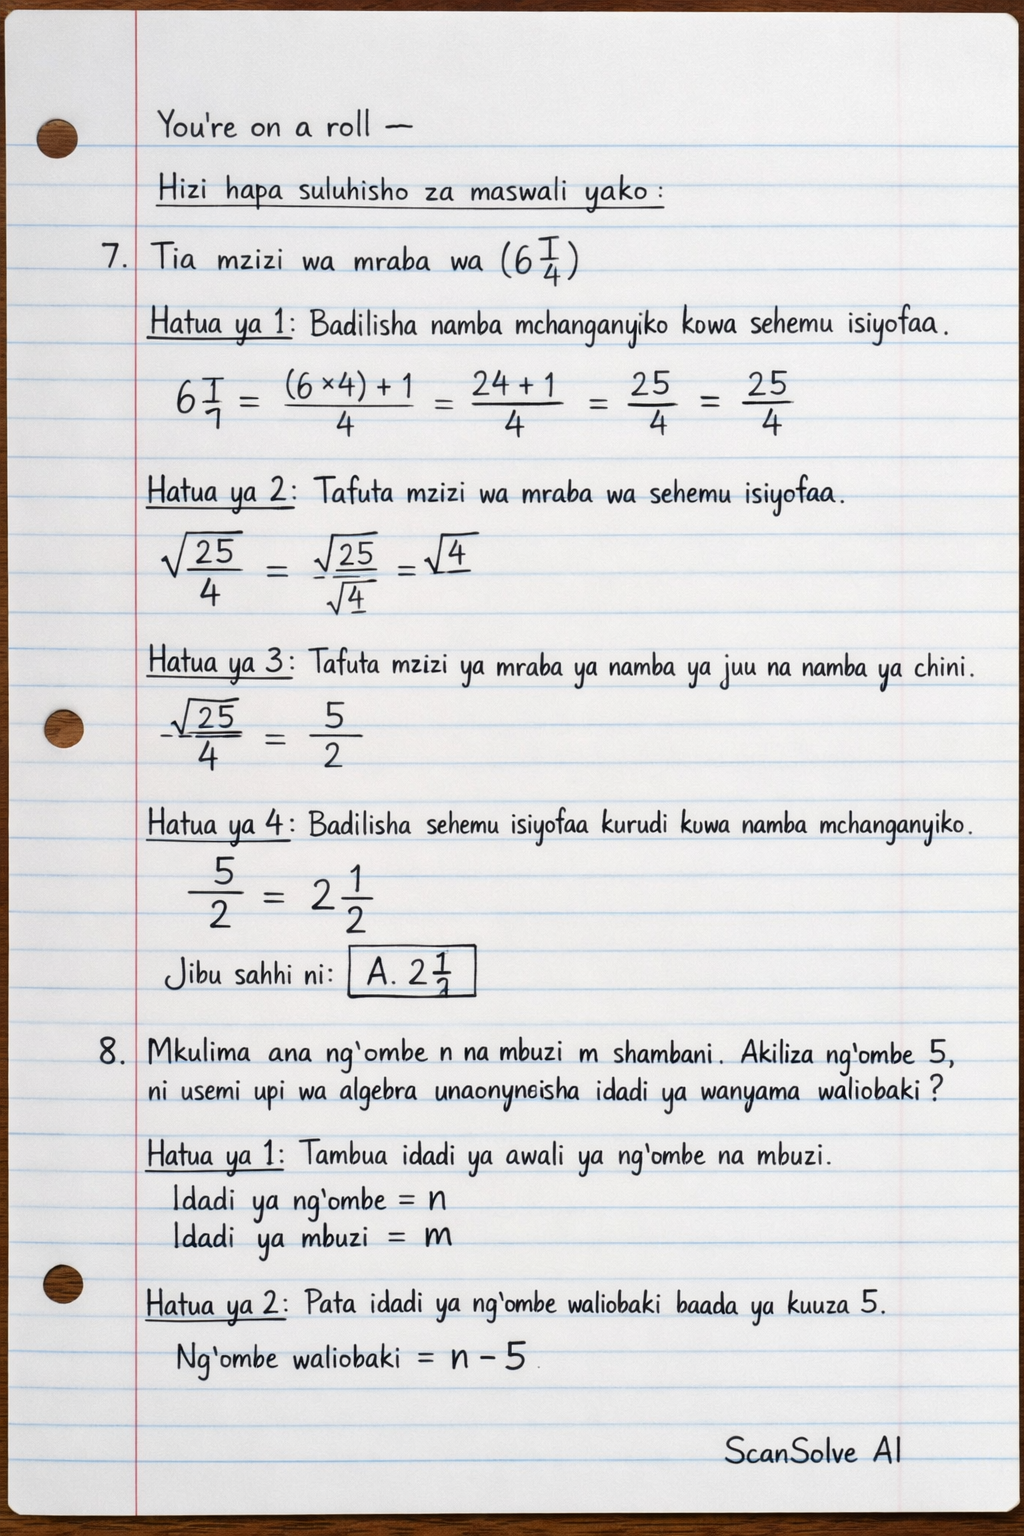 You're on a roll —
Hizi hapa suluhisho za maswali yako :
7. Tia mzizi wa mraba wa (6 1/4)
Hatua ya 1: Badilisha namba mchanganyiko kowa sehemu isiyofaa.
6 1/7 = (6×4)+1/4 = 24+1/4 = 25/4 = 25/4
Hatua ya 2: Tafuta mzizi wa mraba wa sehemu isiyofaa.
√25/4 = √25/√4 = √4
Hatua ya 3: Tafuta mzizi ya mraba ya namba ya juu na namba ya chini.
√25/4 = 5/2
Hatua ya 4: Badilisha sehemu isiyofaa kurudi kuwa namba mchanganyiko.
5/2 = 2 1/2
Jibu sahhi ni: A. 2 1/2
8. Mkulima ana ng'ombe n na mbuzi m shambani. Akiliza ng'ombe 5,
ni usemi upi wa algebra unaonyneisha idadi ya wanyama waliobaki ?
Hatua ya 1: Tambua idadi ya awali ya ng'ombe na mbuzi.
Idadi ya ng'ombe = n
Idadi ya mbuzi = m
Hatua ya 2: Pata idadi ya ng'ombe waliobaki baada ya kuuza 5.
Ng'ombe waliobaki = n – 5
ScanSolve AI